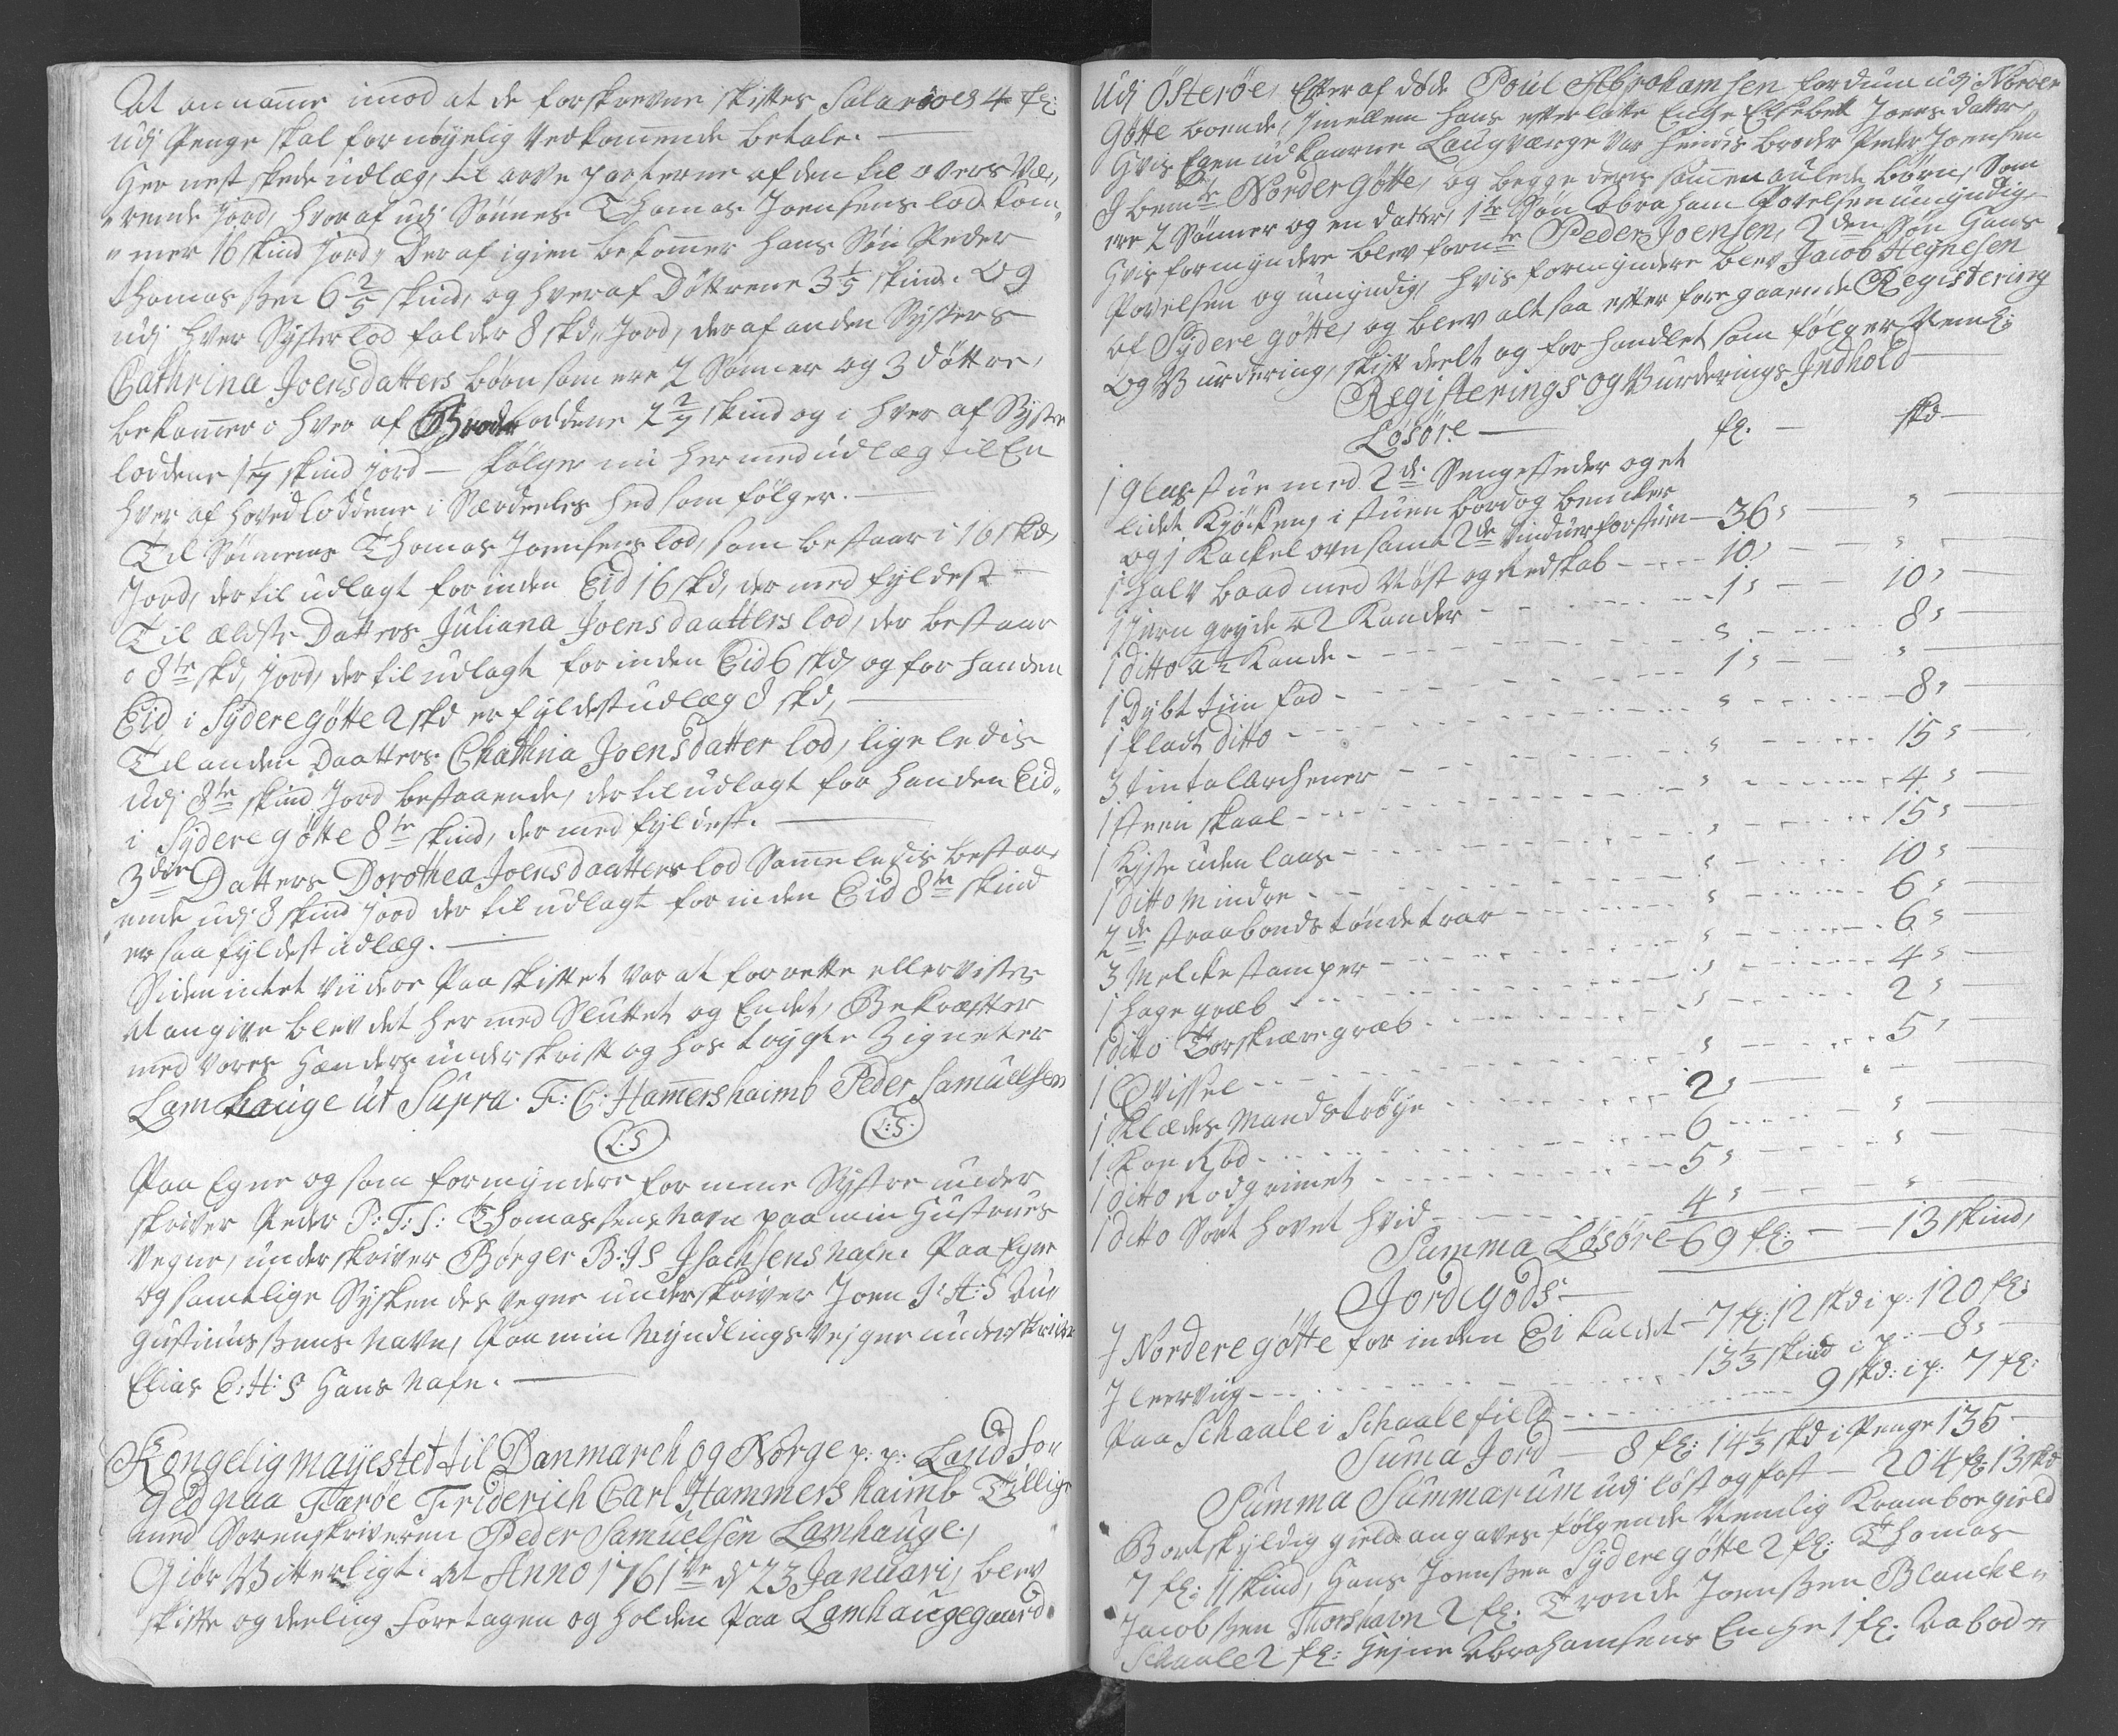 At annamme imod at de forskrevne skiftes Salarioes 4 fl:
udj Penge skal fornøyelig Vedkommende betale. —
Her nest skede udlæg, til arve parterne af den til overs Væ„
„rende Jord, hvoraf udj Sønnes Thomas Joensens lod kom„
„mer 16 skind Jord, Deraf igien bekommer hans Søn Peder
Thomasßen 6 2/5 skind, og hver af Døttrene 3 1/5 skind. Og
udj hver Systerlod falder 8 skd, Jord, deraf anden Systers
Cathrina Joensdatters børn som ere 2 Sønner og 3 døttre,
bekommer hver af Broderloddene 2 2/7 skind og i hver af Syster
loddene 1 1/7 skind jord — følger nu hermed udlæg til En
hver af hovedloddene i Særdeeles hed som følger. —
Til Sønnens Thomas Joensens lod, som bestaar i 16 skd,
Jord, der til udlagt for inden Eid 16 skd, der med fyldest —
Til ældste Datters Juliana Joensdaatters lod, der bestaar
i 8te skd, jord, der til udlagt for inden Eid 6 skd, og for handen
Eid i Syderegøtte 2 skd er fyldest udlæg 8 skd, —
Til anden Daatters Chathrina Joensdatter lod, lige ledis
udj 8te skind Jord bestaaende, der til udlagt for handen Eid„
i Syderegøtte 8te skind, der med fyldest. —
3die Datters Dorothea Joensdaatters lod Samme ledis bestaa„
„ende udj 8 skind Jord der til udlagt for inden Eid 8te skind
er saa fyldest udlæg. —
Siden intet viidere Paa skiftet var at forrette eller vistes
at angive blev det hermed Sluttet og Endet, Bekræfter
med Vores Hænders underskrift og hos trygte Zigneter
Lamhauge ut Supra. F: C: Hamershaimb Peder Samuelsen
L:S L:S.
Paa Egne og som formyndere for mine Systre under
skriver Peder P: T: S: Thomasßens Navn paa min Hustrues
Vegne, underskriver Børger B: I S Isachsens Nafn. Paa Egne
og samtlige Syskendes vegne underskriver Joen J: A: S Au„
gustinusßens Navn, Paa min Myndlings Vejgne underskriver
Elias E: H: S Hans Nafn. —
Kongelig mayested til Danmarch og Norge p: p: Landfo„
ged paa Færøe Friderich Carl Hammershaimb Tillige
med Sorenskriveren Peder Samuelsen Lamhauge.,
Giør Vitterligt. At Anno 1761ve d 23 Januari, blev
skifte og deeling foretagen og holden Paa Lamhaugegaard
udj Østerøe, Efter afdøde Poul Abrahamsen fordum udj Norder
Gøtte boende, Imellem hans efterlatte Enche Elsebett Joens datter,
Hvis Egen udkaarne Laugværge var hendis broder Peder Joensen
I bemte Nordergøtte, og begge deres sammen aulede børn, Som
ere 2 Sønner og en datter, 1te Søn Abraham Povelsen umyndig
Hvis formyndere blev fornte Peder Joensen, 2den Søn Hans
Povelsen og umyndig, hvis formyndere blev Jacob Hejnesen
af Sydere gøtte, og blev altsaa efter foregaaende Registering
og Vurdering, skift deelt og forhandlet som følger Nemlig
Registerings og Vurderings Indhold
Løsøre — fl. — skd —
1 glas stue med 2de Sengesteder og et
lidet Kjøcken, i stuen bord og bencker
og 1 Kackelovn samt 2de vinduer for stuen — 36 „ — „ —
1 halv baad med Røst og Redskab — 10 „ — „
1 Jern gryde a 2 Kander — 1 „ — 10 „ —
1 ditto a 1/2 Kande — „ — 8 „ —
1 Dybt tiin fad — 1 „ — „ —
1 flact ditto — „ — 8 „ —
3 tin talarchener — „ — 15 „ —
1 steen skaal — „ — 4 „ —
1 Kiste uden laas — „ — 15 „ —
1 ditto mindre — „ — 10 „ —
2de straabonds tønde trar — „ — 6 „ —
3 Melcke stamper — „ — 6 „ —
1 hage græb — „ — 4 „ —
1 ditto Torskiære græb — „ — 2 „ —
1 Qvissel — „ — 5 „
1 Klædes Mands trøye — 2 „ — „ —
1 Koe Rød — 6 — „ —
1 ditto Rødgrimet — 5 „ — „ —
1 ditto Sort hovet hvid — 4 „ — „ —
Summa Løsøre 69 fl: — 13 skind,
Jordegods —
I Norderegøtte for inden Ei kaldet — 7 fl: 12 skd i p: 120 fl:
I leerviig — 13 1/3 skind i p: — 8 „ —
Paa Schaale i Schaalefield — 9 skd: i p: 7 fl:
Suma Jord — 8 fl: 14 1/3 skd i Penge 135 —
Summa Summarum udj løst og fast — 204 fl: 13 skd
Bortskyldig gield angaves følgende Nemlig Krambor gield
7 fl: 11 skind, Hans Joensßen Syderegøtte 2 fl: Thomas
Jacobsßen Thorshavn 2 fl: Tronde Joensßen Blancke„
Schaale 2 fl: Hejne Abrahamsens Enche 1 fl: